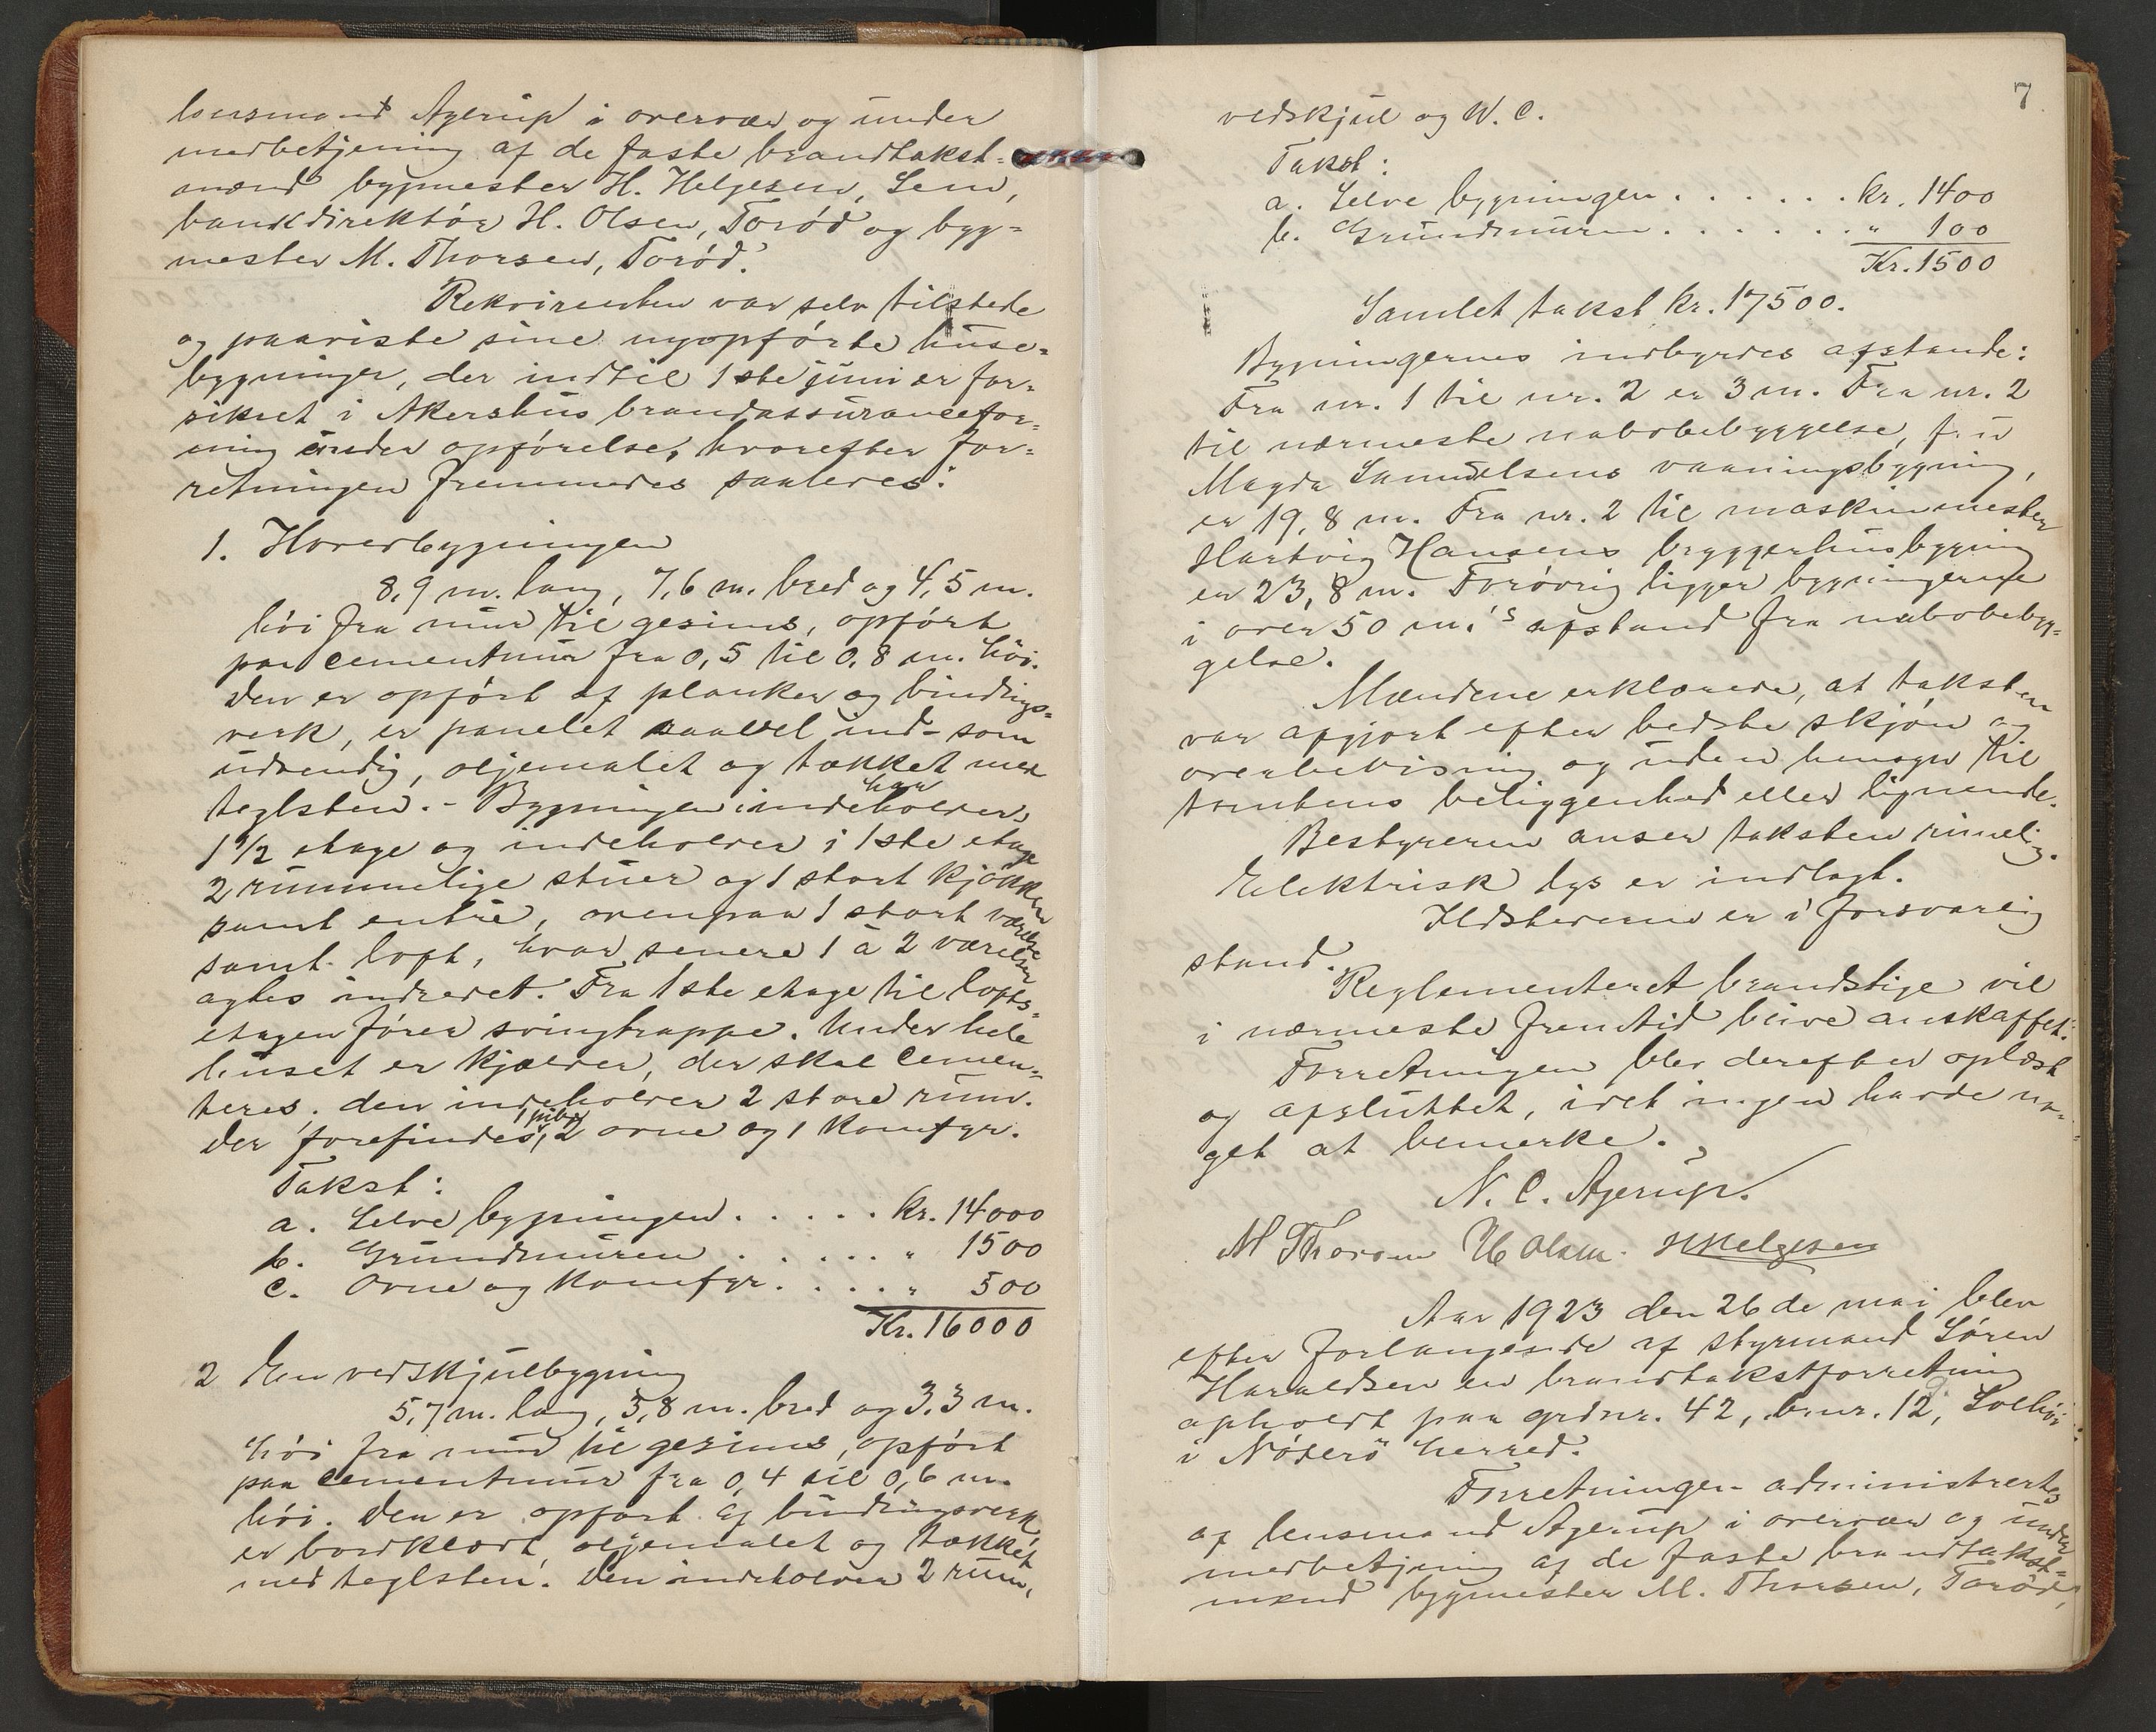 lensmand Agerup i overvær og under
medbetjening af de faste brandtakst-
mænd bygmester H. Helgesen, Sem,
bankdirektör H. Olsen, Toröd og byg-
mester M. Thorsen, Toröd.
Rekvirenten var selv tilstede
og paaviste sine nyopförte huse-
bygninger, der indtil 1ste juni er for-
sikret i Akershus brandassurancefor-
ning under opförelse, hvorefter for-
retningen fremmedes saaledes:
1. Hovedbygningen
8,9 m. lang, 7,6 m. bred og 4,5 m.
höi fra mur til gesims, opfört
paa cementmur fra 0,5 til 0,8 m. höi.
Den er opfört af planker og bindings-
verk, er panelet saavel ind- som
udvendig, oljemalet og tækket med
teglsten. - Bygningen indeholder har
1 1/2 etage og indeholder i 1ste etage
2 rummelige stuer og 1 stort kjökken
samt entré, ovenpaa 1 stort værelse
samt loft, hvor senere 1 à 2 værelser
agtes indredet. Fra 1ste etage til lofts-
etagen förer svingtrappe. Under hele
huset er kjælder, der skal cemen-
teres, den indeholder 2 store rum.
Der forefindes 1 pibe, 2 ovne og 1 komfyr.
Takst:
a. Selve bygningen . . . . . kr. 14000
b. Grundmuren . . . . . " 1500
c. Ovne og komfyr . . . . " 500
Kr. 16000
2 En vedskjulbygning
5,7 m. lang, 3,8 m. bred og 3,3 m.
höi fra mur til gesims, opfört
paa cementmur fra 0,4 til 0,6 m.
höi. Den er opfört af bindingsverk,
er bordklædt, oljemalet og tækket
med teglsten. Den indeholder 2 rum,
7
vedskjul og W. C.
Takst:
a. Selve bygningen . . . . . . kr. 1400
b. Grundmuren . . . . . . " 100
Kr. 1500
Samlet takst kr. 17500.
Bygningernes indbyrdes afstande:
Fra nr. 1 til nr. 2 er 3 m. Fra nr. 2
til nærmeste nabobebyggelse, fru
Magda Samuelsens vaaningsbygning,
er 19,8 m. Fra nr. 2 til maskinmester
Hartvig Hansens bryggerhusbygning
er 23,8 m. Forövrig ligger bygningerne
i over 50 m.'s afstand fra nabobebyg-
gelse.
Mændene erklærede, at taksten
var afgjort efter bedste skjön og
overbevisning og uden hensyn til
tomtens beliggenhed eller lignende.
Bestyreren anser taksten rimelig.
Elektrisk lys er indlagt.
Ildstederne er i forsvarlig
stand.
Reglementeret brandstige vil
i nærmeste fremtid blive anskaffet.
Forretningen blev derefter oplæst
og afsluttet, idet ingen havde no-
get at bemerke.
N. C. Agerup.
M Thorsen H Olsen. H Helgesen
Aar 1923 den 26de mai blev
efter forlangende af styrmand Sören
Haraldsen en brandtakstforretning
afholdt paa grdnr. 42, brnr. 12, Solhöi
i Nöterö herred.
Forretningen administrertes
af lensmand Agerup i overvær og under
medbetjening af de faste brandtakst-
mænd bygmester M. Thorsen, Toröd,